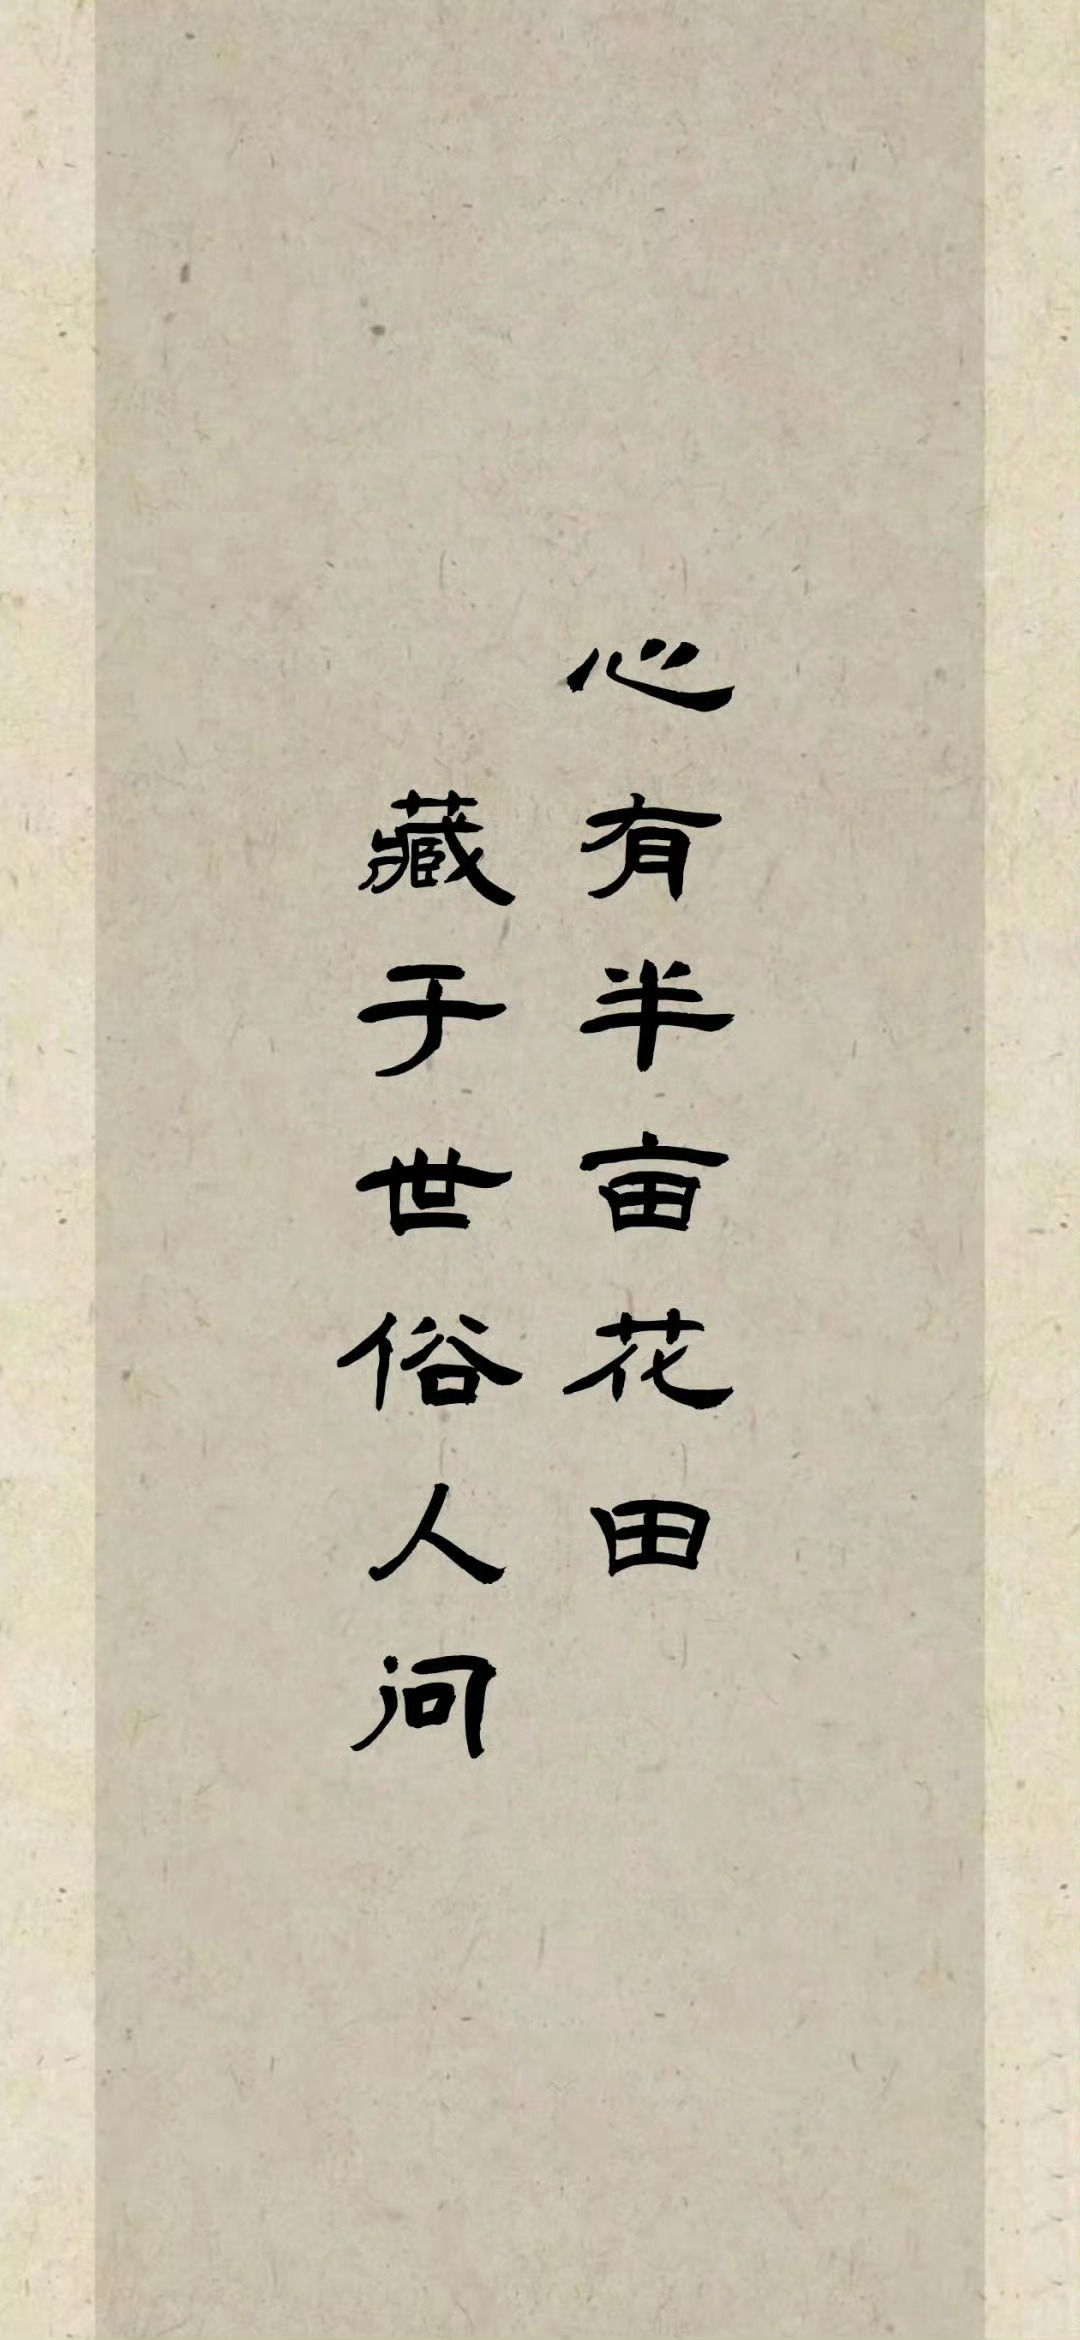 心有半亩花田
藏于世俗人问